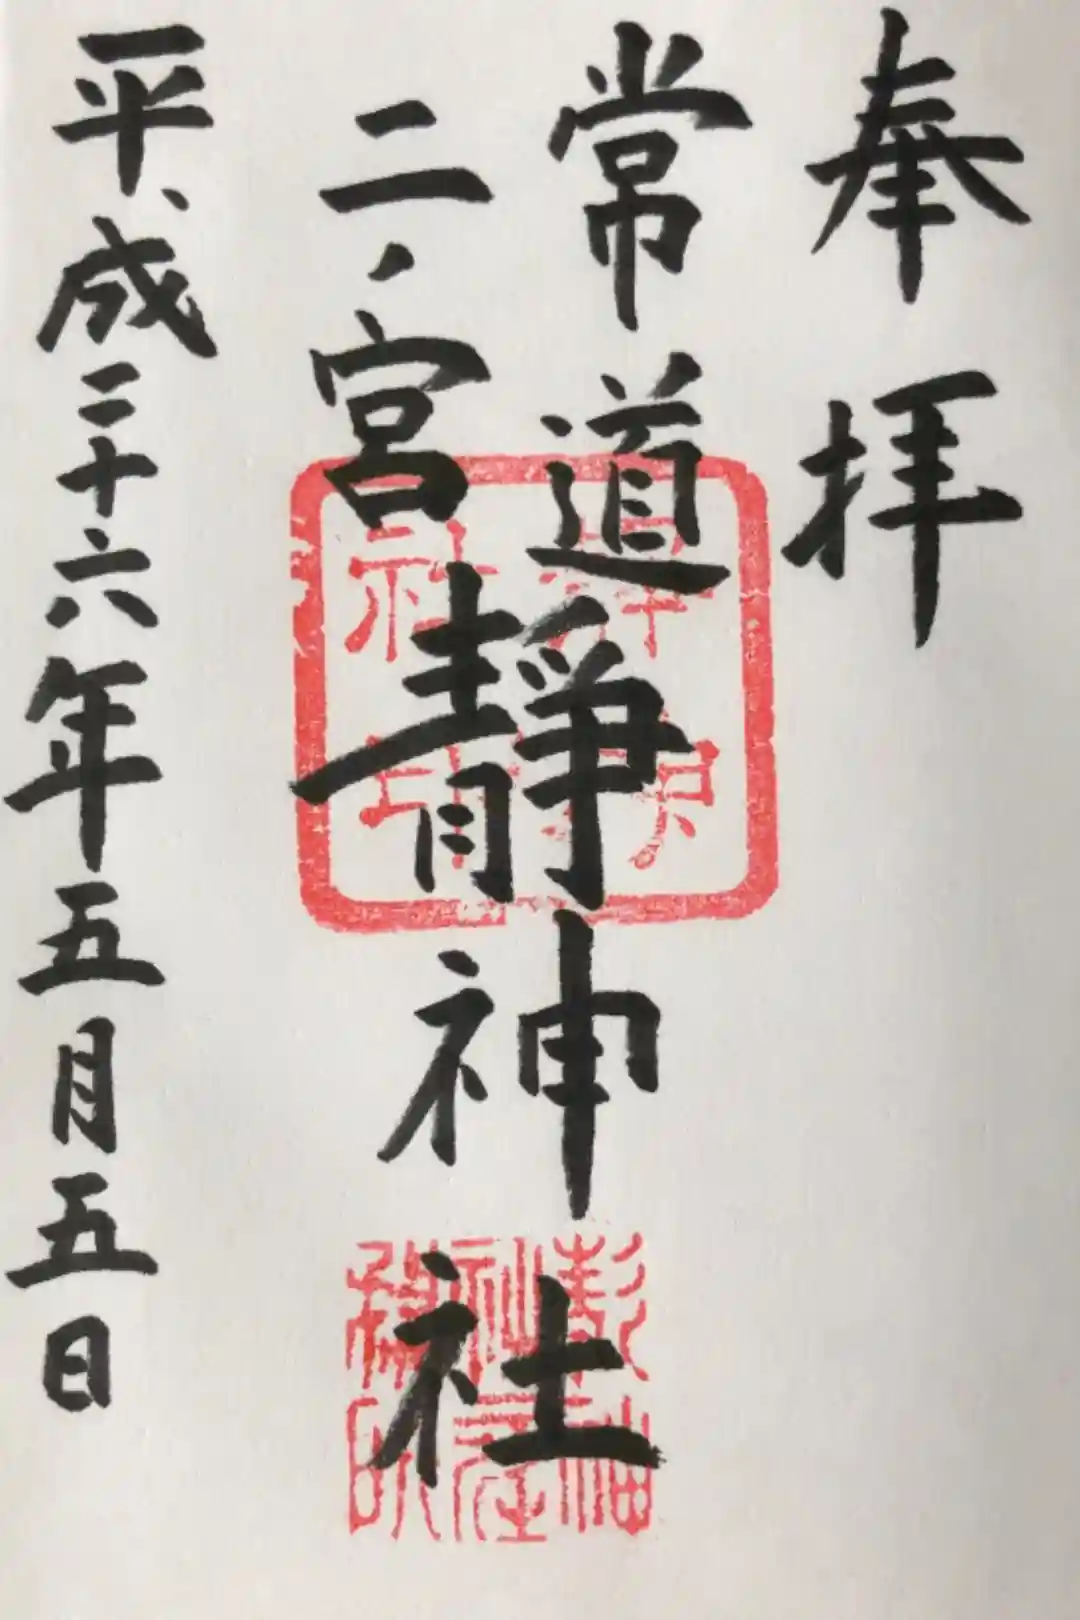 奉拝
常道
二ノ宮
靜神社
平成二十六年五月五日